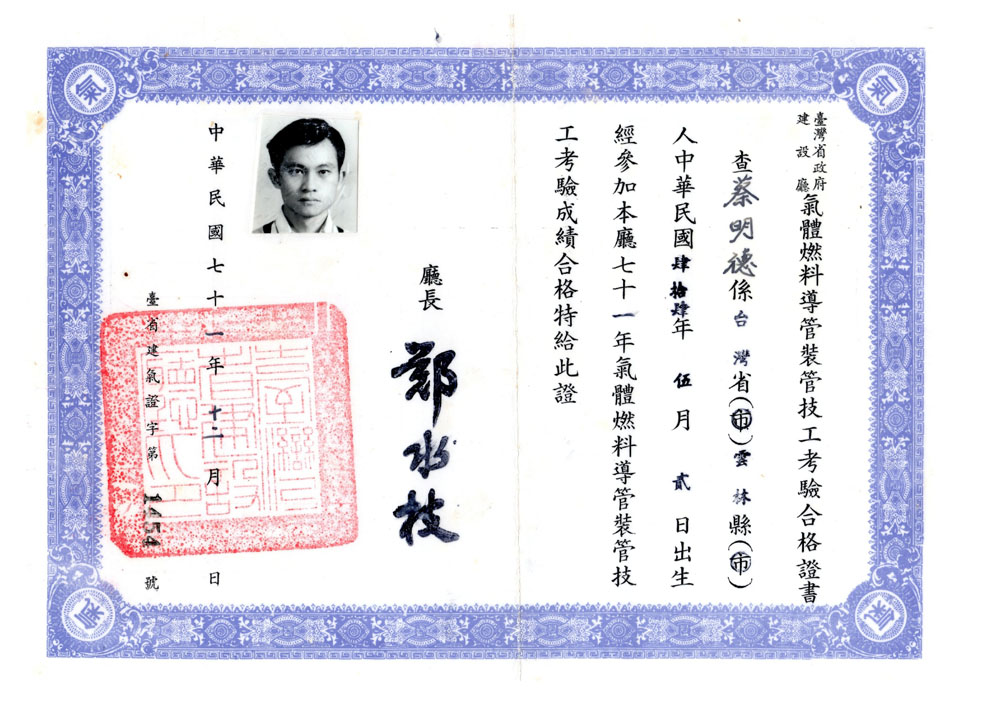 臺灣省政府建設廳氣體燃料導管裝管技工考驗合格證書
查蔡明德係台灣省(市)雲林縣(市)
人中華民國肆拾肆年伍月貳日出生
經參加本廳七十一年氣體燃料導管裝管技
工考驗成績合格特給此證
廳長 鄭水枝
中華民國七十一年十二月 日
臺省建氣證字第1454號
氣
氣
氣
氣